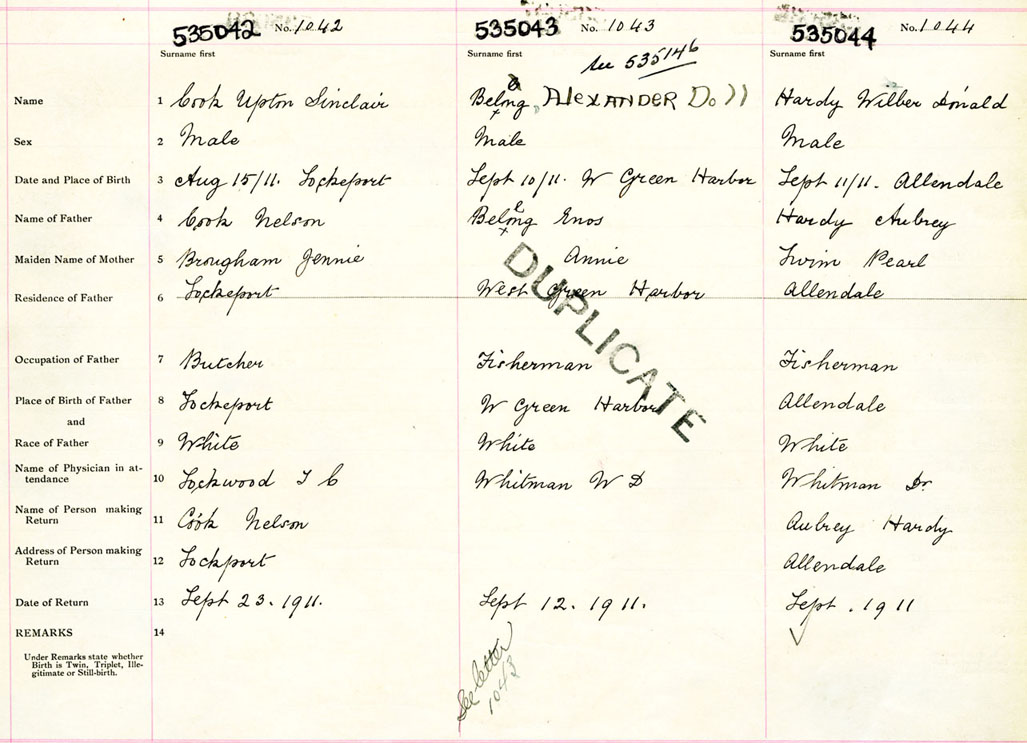 535042 No. 1042 535043 No. 1043 535044 No. 1044
Surname first Surname first Surname first
See 535146
Name 1 Cook Upton Sinclair Belong, ALEXANDER Hardy Wilber Donald
Sex 2 Male Male Male
Date and Place of Birth 3 Aug 15/11. Lockeport Sept 10/11. W Green Harbor Sept 11/11. Allendale
Name of Father 4 Cook Nelson Belong Enos Hardy Aubrey
Maiden Name of Mother 5 Brougham Jennie Annie Swim Pearl
Residence of Father 6 Lockeport West Green Harbor Allendale
DUPLICATE
Occupation of Father 7 Butcher Fisherman Fisherman
Place of Birth of Father 8 Lockeport W Green Harbor Allendale
and
Race of Father 9 White White White
Name of Physician in at-
tendance 10 Lockwood T C Whitman W D Whitman Dr.
Name of Person making
Return 11 Cook Nelson Aubrey Hardy
Address of Person making
Return 12 Lockport Allendale
Date of Return 13 Sept 23. 1911. Sept 12. 1911. Sept . 1911
REMARKS 14
Under Remarks state whether
Birth is Twin, Triplet, Ille-
gitimate or Still-birth.
See letter
1043